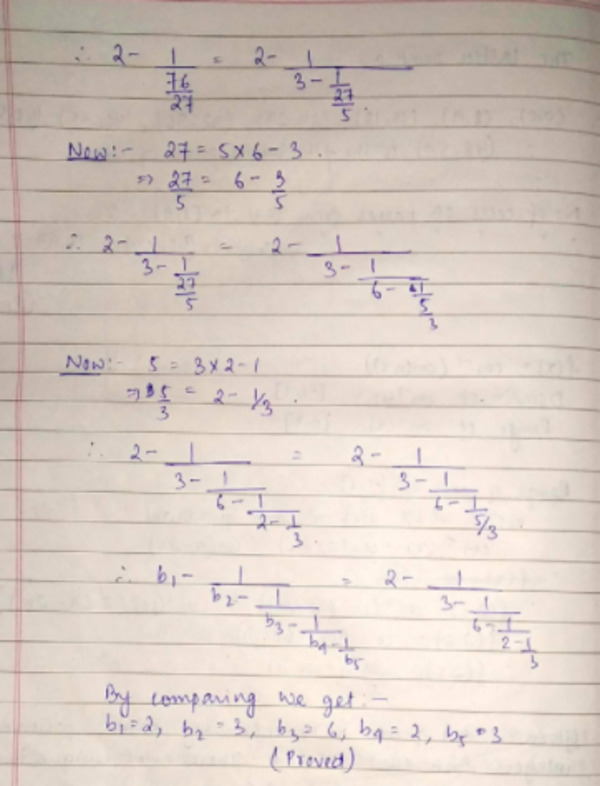 ∴ 2 - 1/(76/27) = 2 - 1/(3 - 1/(27/5))
Now:- 27 = 5×6 - 3.
⇒ 27/5 = 6 - 3/5
∴ 2 - 1/(3 - 1/(27/5)) = 2 - 1/(3 - 1/(6 - 1/(5/3)))
Now:- 5 = 3×2-1
⇒ 5/3 = 2 - 1/3.
∴ 2 - 1/(3 - 1/(6 - 1/(2 - 1/3))) = 2 - 1/(3 - 1/(6 - 1/(5/3)))
∴ b₁ - 1/(b₂ - 1/(b₃ - 1/(b₄ - 1/b₅))) = 2 - 1/(3 - 1/(6 - 1/(2 - 1/3)))
By comparing we get:-
b₁=2, b₂ = 3, b₃ = 6, b₄ = 2, b₅ = 3
(Proved)